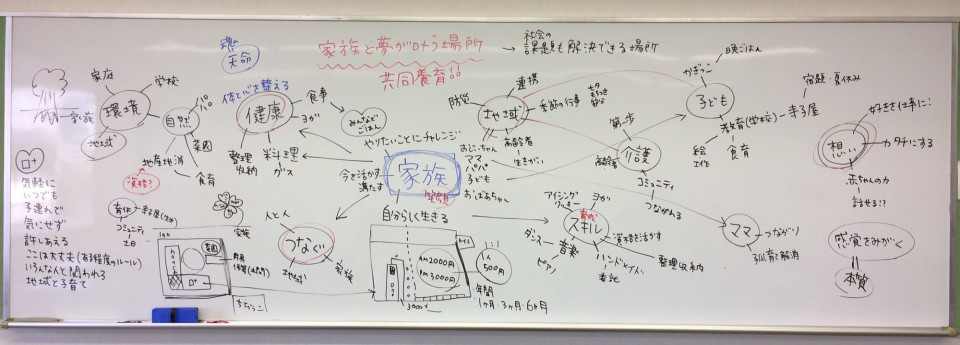 魂
天命
家族と夢が叶う場所
→ 社会の
課題も解決できる場所
共同養育!!
晩ごはん
かぎっこ
子ども
宿題・夏休み
教育(学校)ー寺子屋
食育
絵
工作
好きを仕事に:
カタチにする
想い
赤ちゃんの力
話せる!?
感覚をみがく
本質
家庭
学校
環境
地域
自然
菜園
地産地消
食育
資格?
家族
体と心を整える
健康
食事
ヨガ
整理
収納
料理
ガス
みんなで
ごはん
やりたいことにチャレンジ
今を活かす
満たす
家族
笑顔
自分らしく生きる
おじいちゃん
ママ
パパ
子ども
おばあちゃん
防災
連携
地域
季節の行事
七夕
高齢者
生きがい
介護
コミュニティ
つながれる
ママ
つながり
子育て
解消
スキル
育成
アイシング
クッキー
ヨガ
資格を活かす
整理収納
ハンドメイド
委託
音楽
ダンス
ピアノ
つなぐ
人と人
地域
家族
気軽に
いつでも
子連れで
気にせず
許しあえる
ここは大丈夫(有る程度のルール)
いろんな人と関われる
地域と子育て
寺子屋
コミュニティ
土日
菜園
AM2000円
PM3000円
1人
500円
年間
1ヶ月・3ヶ月・6ヶ月